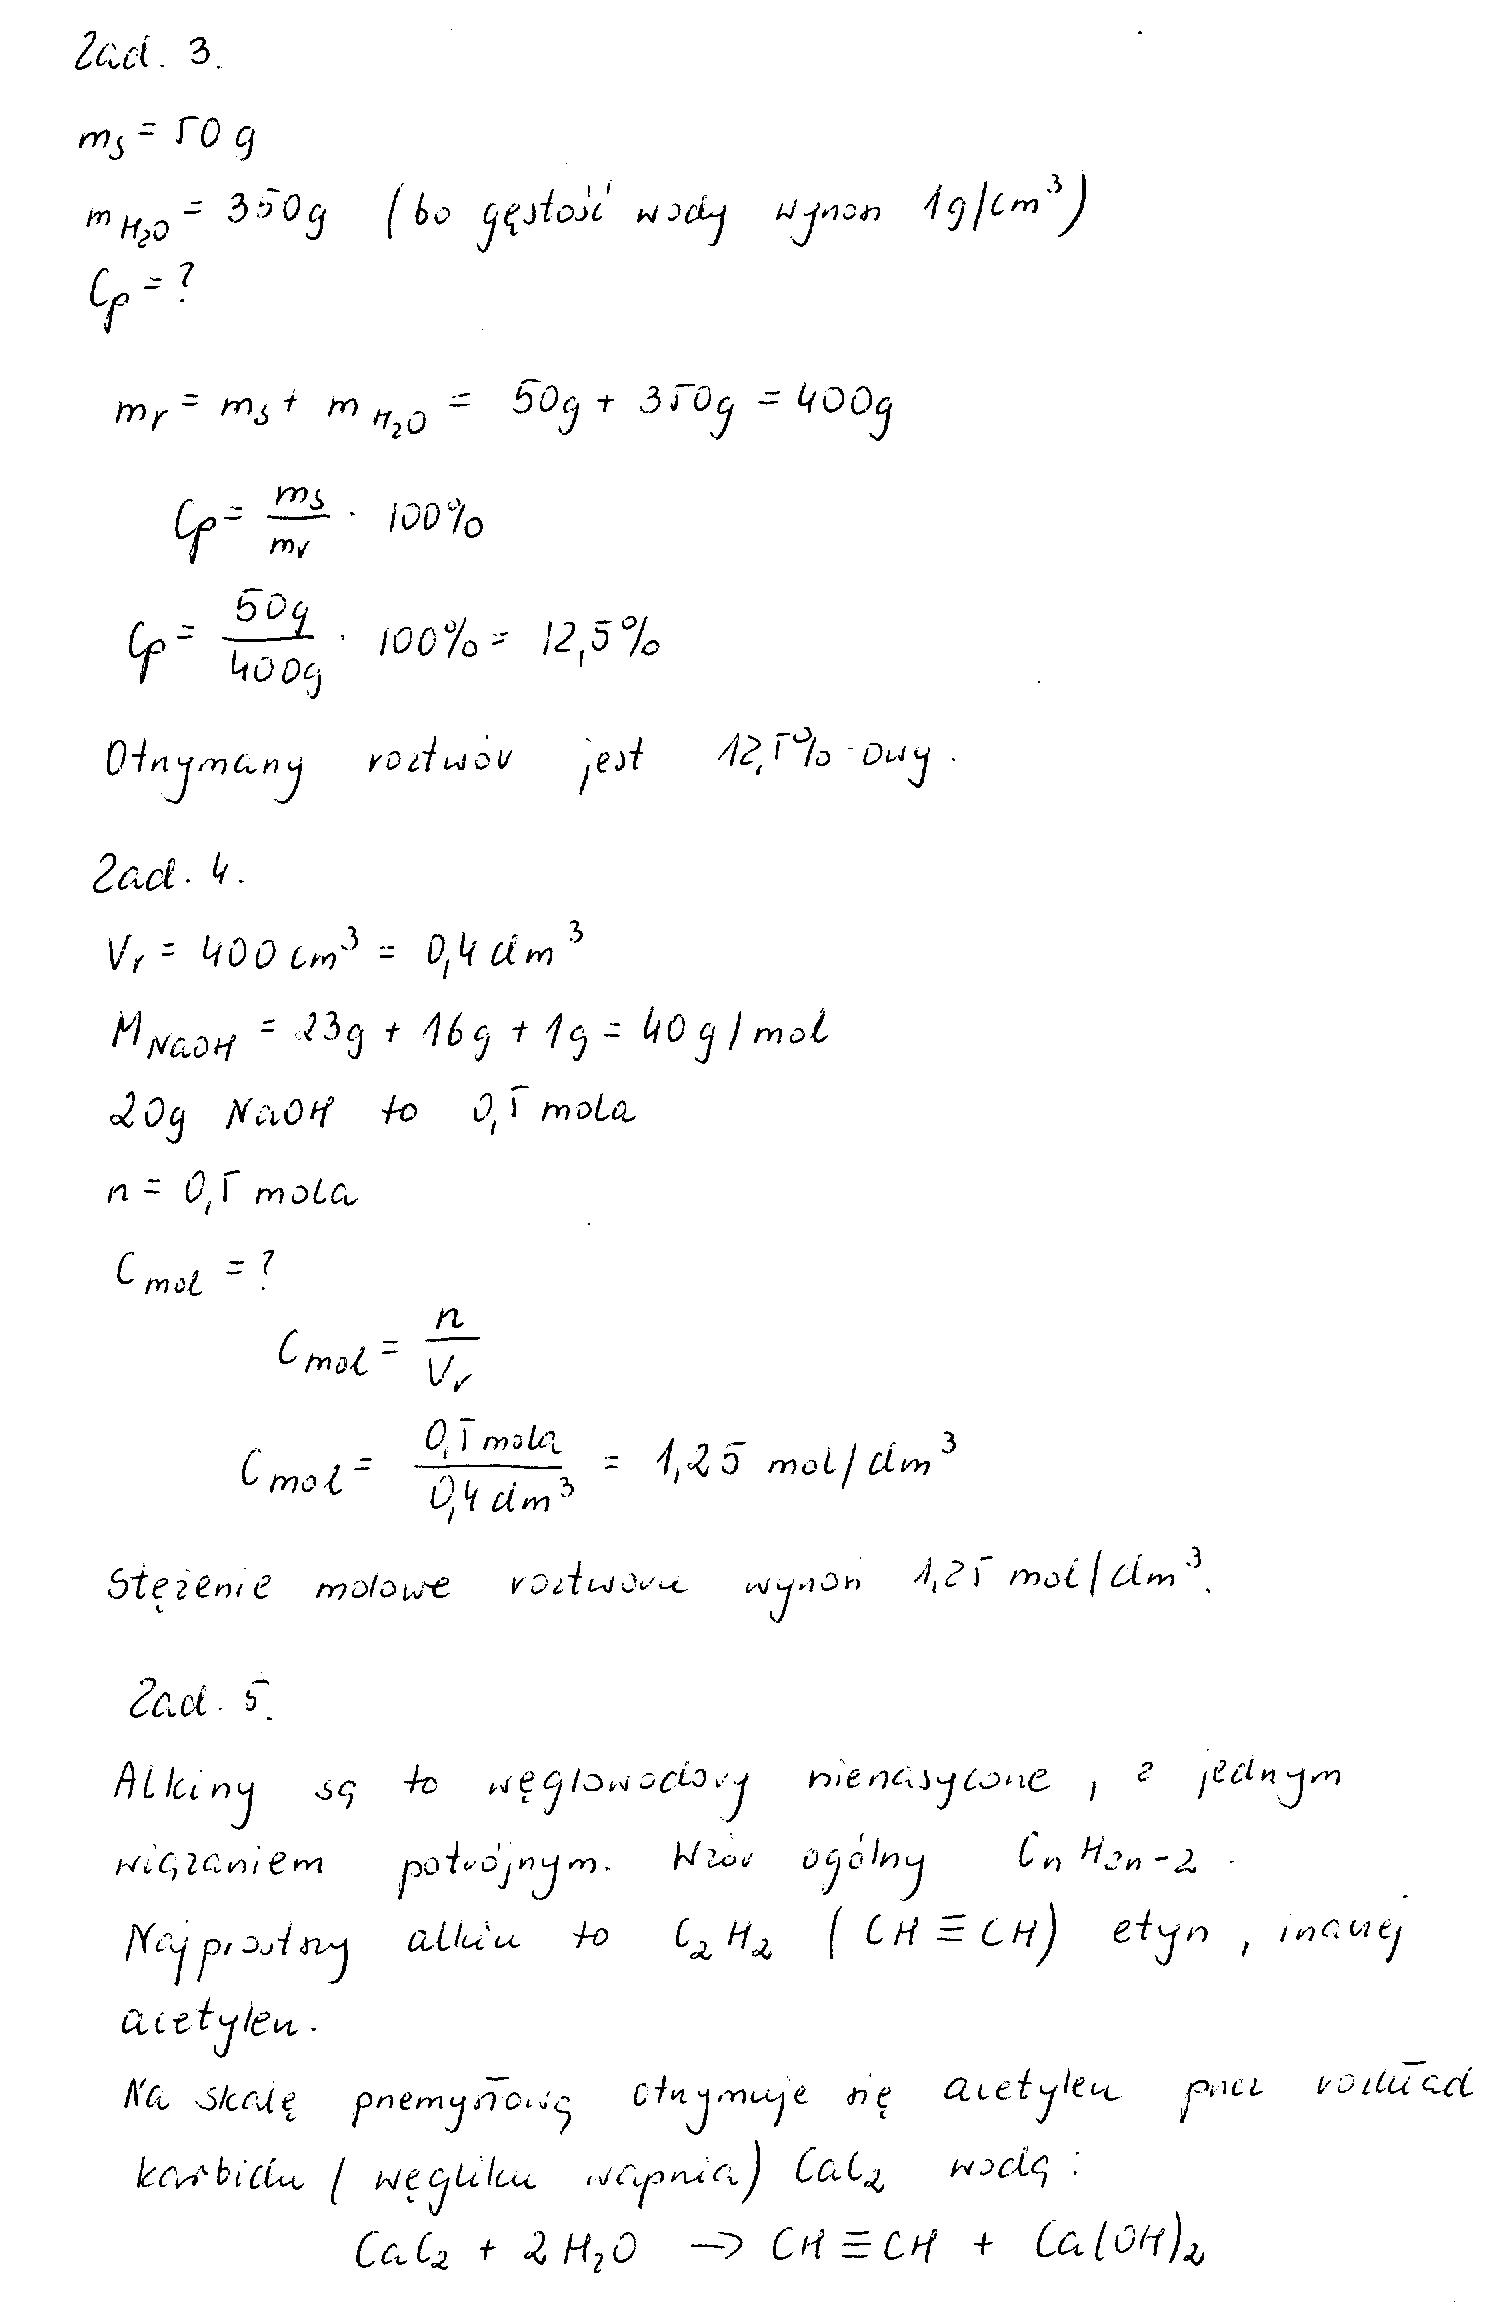 Zad. 3.
m_s = 50 g
m_H₂O = 350g (bo gęstość wody wynosi 1g/cm³)
Cp = ?
m_r = m_s + m_H₂O = 50g + 350g = 400g
Cp = m_s/m_r · 100%
Cp = 50g/400g · 100% = 12,5%
Otrzymany roztwór jest 12,5%-owy.
Zad. 4.
V_r = 400 cm³ = 0,4 dm³
M_NaOH = 23g + 16g + 1g = 40 g/mol
20g NaOH to 0,5 mola
n = 0,5 mola
C_mol = ?
C_mol = n/V_r
C_mol = 0,5 mola/0,4 dm³ = 1,25 mol/dm³
Stężenie molowe roztworu wynosi 1,25 mol/dm³.
Zad. 5.
Alkiny są to węglowodory nienasycone, z jednym
wiązaniem potrójnym. Wzór ogólny CnH2n-2.
Najprostszy alkin to C₂H₂ (CH≡CH) etyn, inaczej
acetylen.
Na skalę przemysłową otrzymuje się acetylen przez rozkład
karbidu (węgliku wapnia) CaC₂ wodą:
CaC₂ + 2H₂O → CH≡CH + Ca(OH)₂